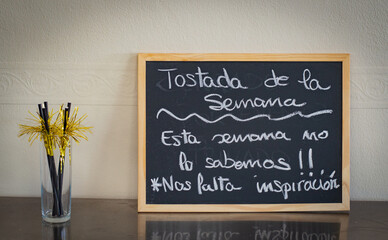 Tostada de la
Semana
Esta semana no
lo sabemos!!
*Nos falta inspiración